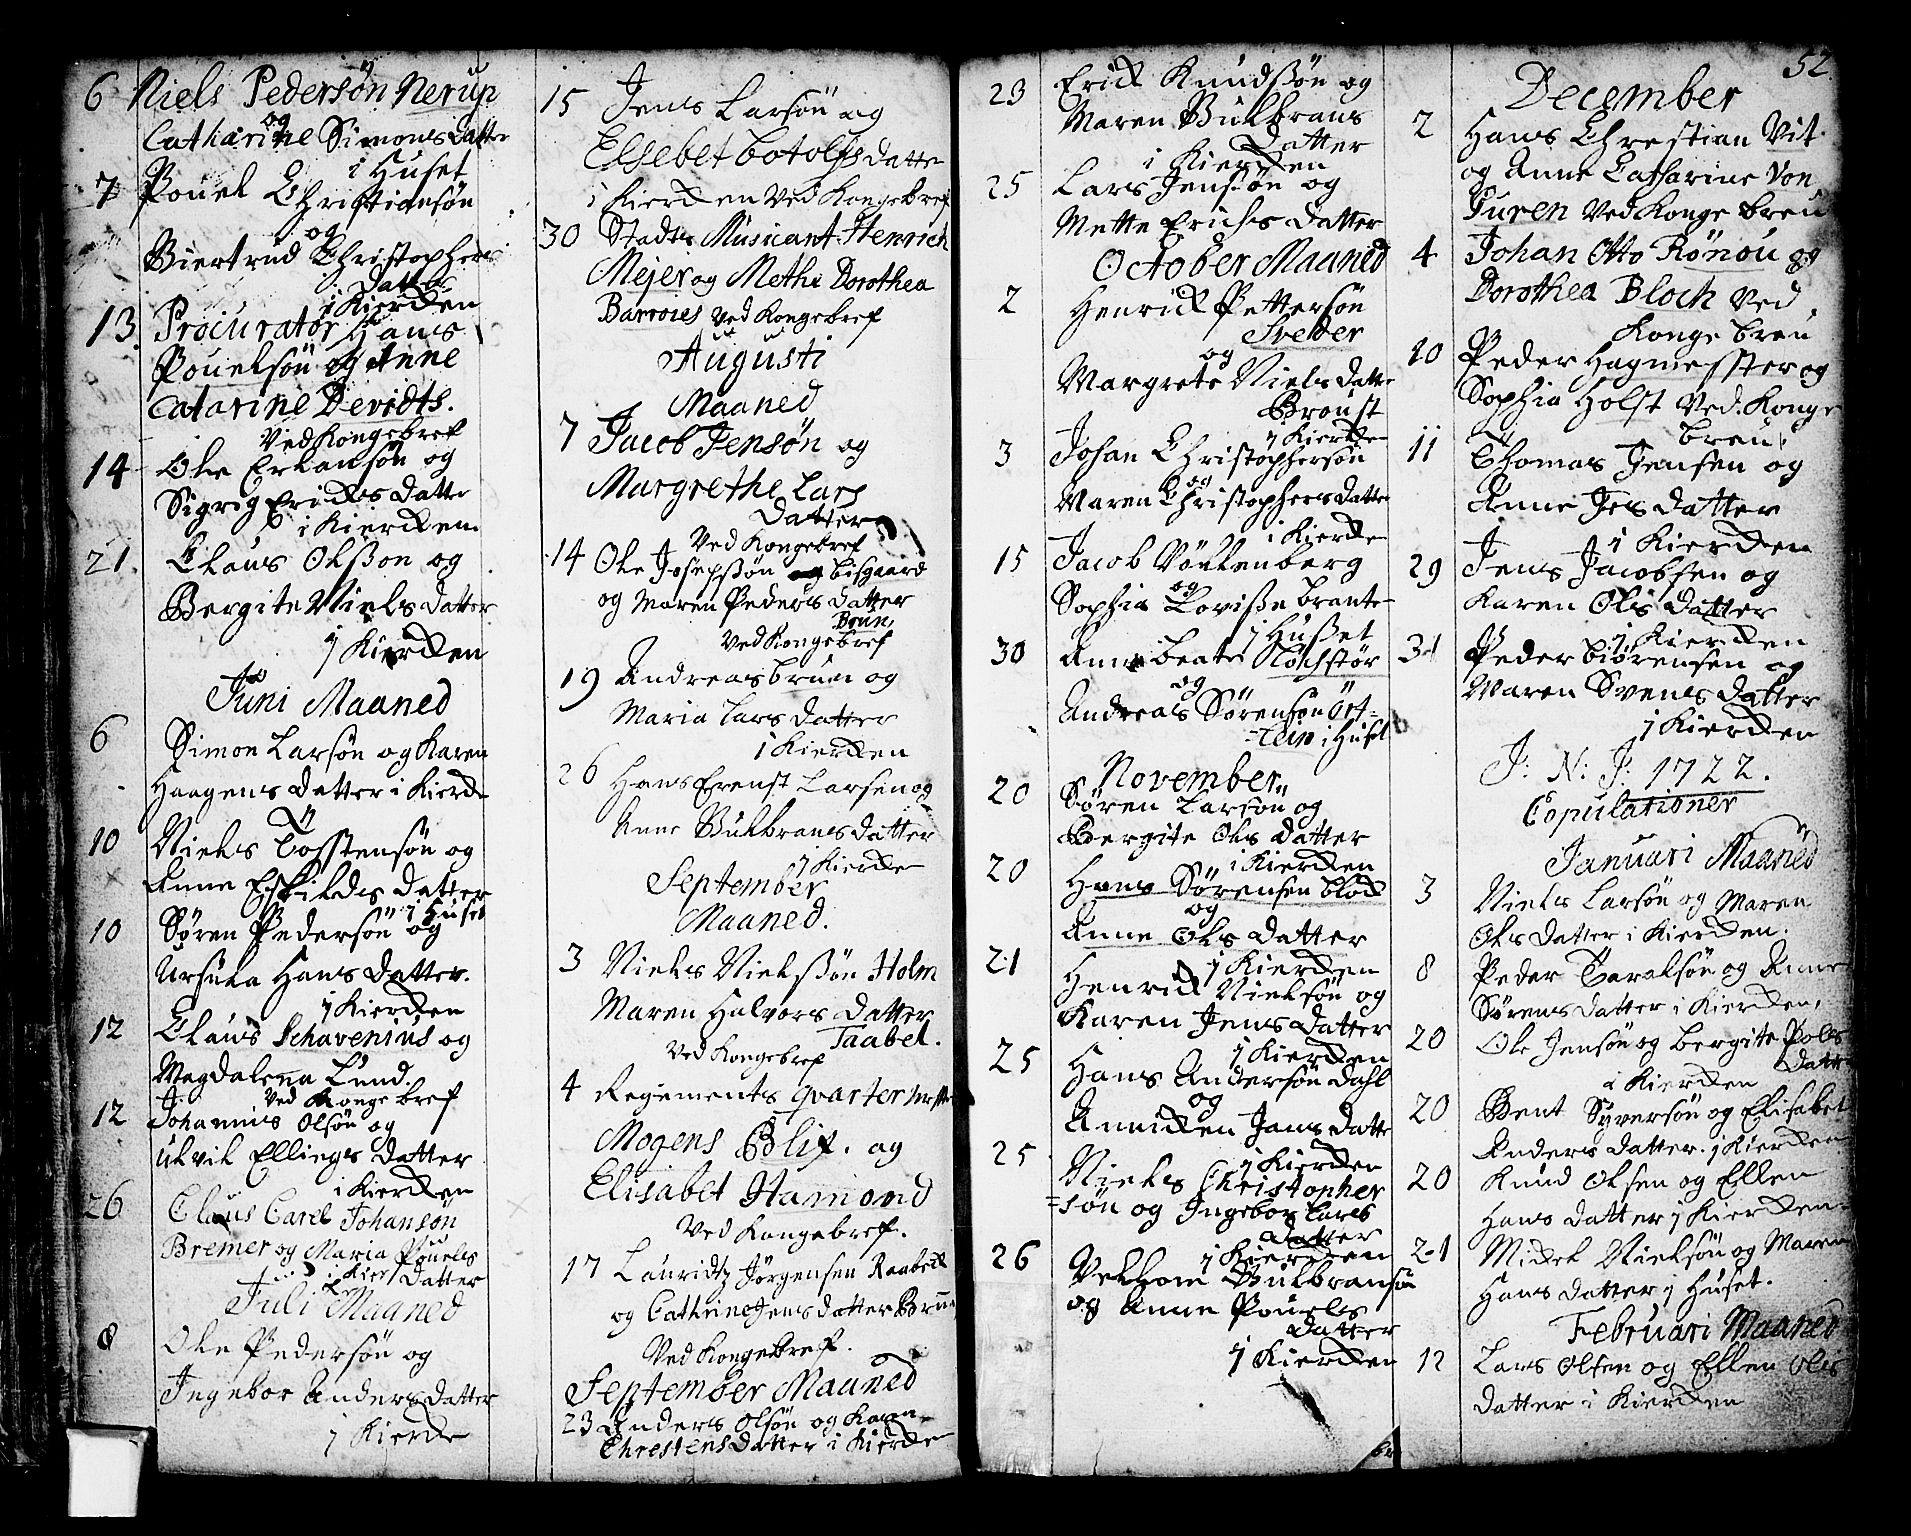 6 Niels Pedersøn Nerup
og
Catharine Simons datter
i Huset
7 Pouel Christiansøn
og
Giertrud Christophers
datter
i Kiercken
13. Procurator Hans
Pouelsøn og Anne
Catarine Devidts.
Ved Kongebref
14 Ole Erlansøn og
Sigrig Ericks datter
i Kiercken
21. Claus Olsson og
Bergite Niels datter
j Kiercken
Juni Maaned
6 Simon Larsøn og Karen
Haagens datter i Kiercke
10 Niels Tosstensøn og
Anne Eskilds datter
i Huset
10 Søren Pedersøn og
Ursula Hans datter.
j Kiercken
12 Claus Schavenius og
Magdalena Lund.
Ved Konge bref
12 Johannis Olsøn og
Ulvil Ellings datter
i Kiercken
26 Claus Carel Johansøn
Bremer og Maria Pouels
i Kier datter
Juli Maaned
8 Ole Pedersøn og
Ingebor Anders datter
j Kiercke
15 Jens Larsøn og
Elsebet Botolfs datter
i Kiercken Ved Kongebref
30 Stadts Musicant Henrich
Mejer og Methe Dorothea
Barroies Ved Kongebref
Augusti
Maaned
7 Jacob Jensøn og
Margrethe Lars
Datter
Ved Kongebref
14 Ole Josepssøn Bisgaard
og Maren Peders datter
Brun,
Ved Kongebref
19 Andreas Brun og
Maria Lars datter
i Kiercken
26 Hans Ernst Larsen og
Anne Gulbrans datter
j Kiercke
September
Maaned.
3 Niels Nielssøn Holm
Maren Halvors datter
Taabel.
Ved Kongebref
4 Regements qvartermester
Mogens Blix. og
Elisabet Hamond
Ved Kongebref.
17 Lauridtz Jørgensen Raabeck
og Cathrine Jens datter Brun
Ved Kongebref.
September Maaned
23 Anders Olsøn og Karen
Chrestens datter i Kiercke
52
23 Erick Knudssøn og
Maren Gulbrans
Datter
i Kiercken
25 Lars Jensøn og
Mette Erichs datter
October Maaned
2 Henrick Pettersøn
Sveder
og
Margrete Niels datter
Broust
j Kiercke
3 Johan Christophersøn
og
Maren Christophers datter
i Kiercke
15 Jacob Vøllenberg
og
Sophia Lovisse Brante
j Husset
30 Anne Beate Nochstør
og
Andreas Sørensøn Ort
=lein i Huset
November
20 Søren Larsøn og
Bergite Ols datter
i Kiercken
20 Hans Sørensen Block
og
Anne Ols datter
j Kiercken
21 Henrick Nielsøn og
Karen Jens datter
j Kiercken
25 Hans Andersøn Dahl
og
Annicken Jans datter
j Kiercken
25 Niels Christopher
=søn og Ingebor Lars
Datter
j Kiercken
26 Velhom Gulbransøn
og Anne Pouels
datter
j Kiercken
December
2 Hans Chrestian Vit
og Anne Catharine Von
Furen Ved Konge breu
4 Johan Otto Rønou og
Dorothea Bloch Ved
Konge breu
10 Peder Hagmesster og
Sophia Holst Ved. Konge
breu,
11 Thomas Jensen og
Anne Jes datter
i Kiercken
29 Jens Jacobsen og
Karen Ols datter
j Kiercken
31 Peder Biørensen og
Maren Svens datter
j Kiercken
J: N: J: 1722.
Copulationer
Januari Maaned
3 Niels Larsøn og Maren
Ols datter i Kiercken.
8 Peder Taralsøn og Anne
Sørens datter i Kiercken,
20 Ole Jensøn og Bergite Pols
Datter
i Kiercken
20 Bent Syversøn og Elisabet
Anders datter. j Kiercken
20 Knud Olsen og Ellen
Hans datter j Kiercken
21 Mickel Nielsøn og Maren
Hans datter j Huset.
Februari Maaned
12 Lars Olsen og Ellen Ols
datter i Kiercken